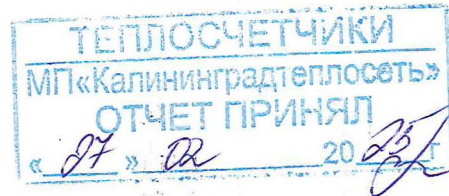 ТЕПЛОСЧЕТЧИКИ
МП«Калининградтеплосеть»
ОТЧЕТ ПРИНЯЛ
« 27 » 02 2025 г